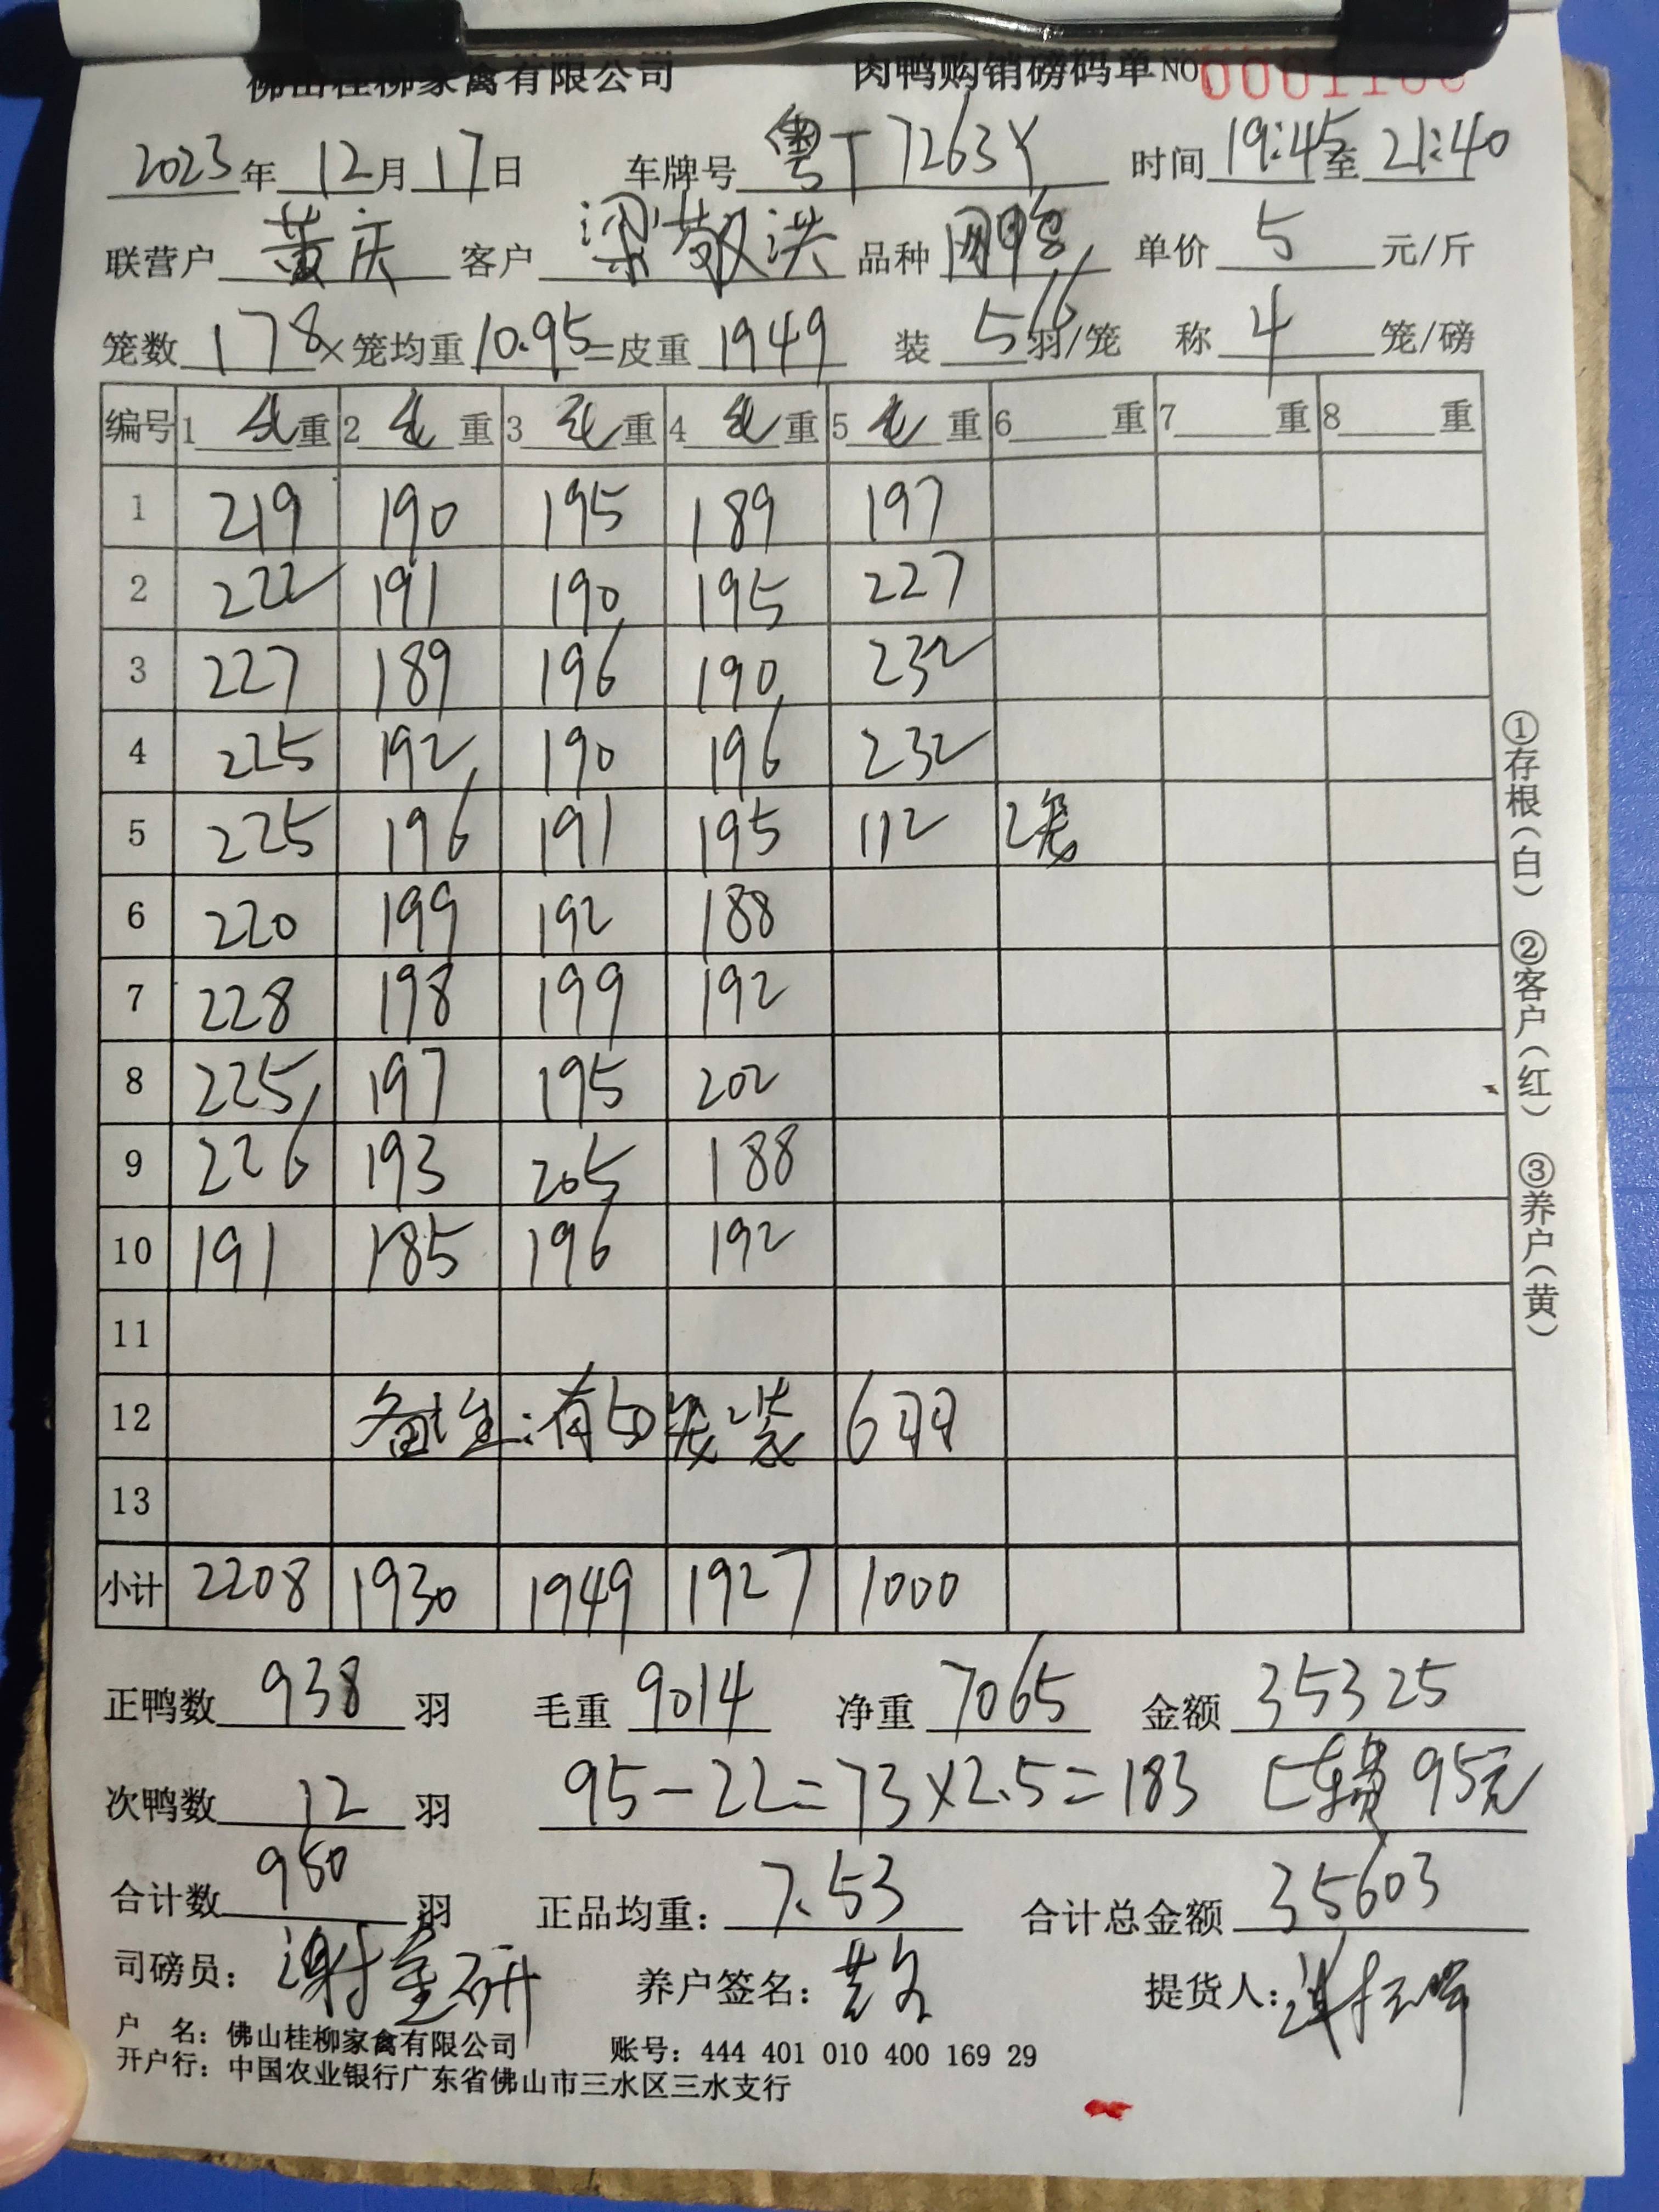 佛山桂柳家禽有限公司 肉鸭购销磅码单 NO
2023年12月17日 车牌号 粤T7263Y 时间 19:45至21:40
联营户 黄庆 客户 梁敬洪 品种 网鸭 单价 5 元/斤
笼数 178×笼均重 10.95=皮重 1949 装 5 6 羽/笼 称 4 笼/磅
编号 1 毛重 2 毛重 3 毛重 4 毛重 5 毛重 6 重 7 重 8 重
1 219 190 195 189 197
2 222 191 190 195 227
3 227 189 196 190 232
4 225 192 190 196 232
5 225 196 191 195 112 2笼
6 220 199 192 188
7 228 198 199 192
8 225 197 195 202
9 226 193 205 188
10 191 185 196 192
11
12 备注:有50笼装6羽
13
小计 2208 1930 1949 1927 1000
正鸭数 938 羽 毛重 9014 净重 7065 金额 35325
次鸭数 12 羽 95-22=73×2.5=183 车费 95元
合计数 950 羽 正品均重: 7.53 合计总金额 35603
司磅员: 谢 研 养户签名: 提货人:
户 名: 佛山桂柳家禽有限公司 账号: 444 401 010 400 169 29
开户行: 中国农业银行广东省佛山市三水区三水支行
①存根(白) ②客户(红) ③养户(黄)